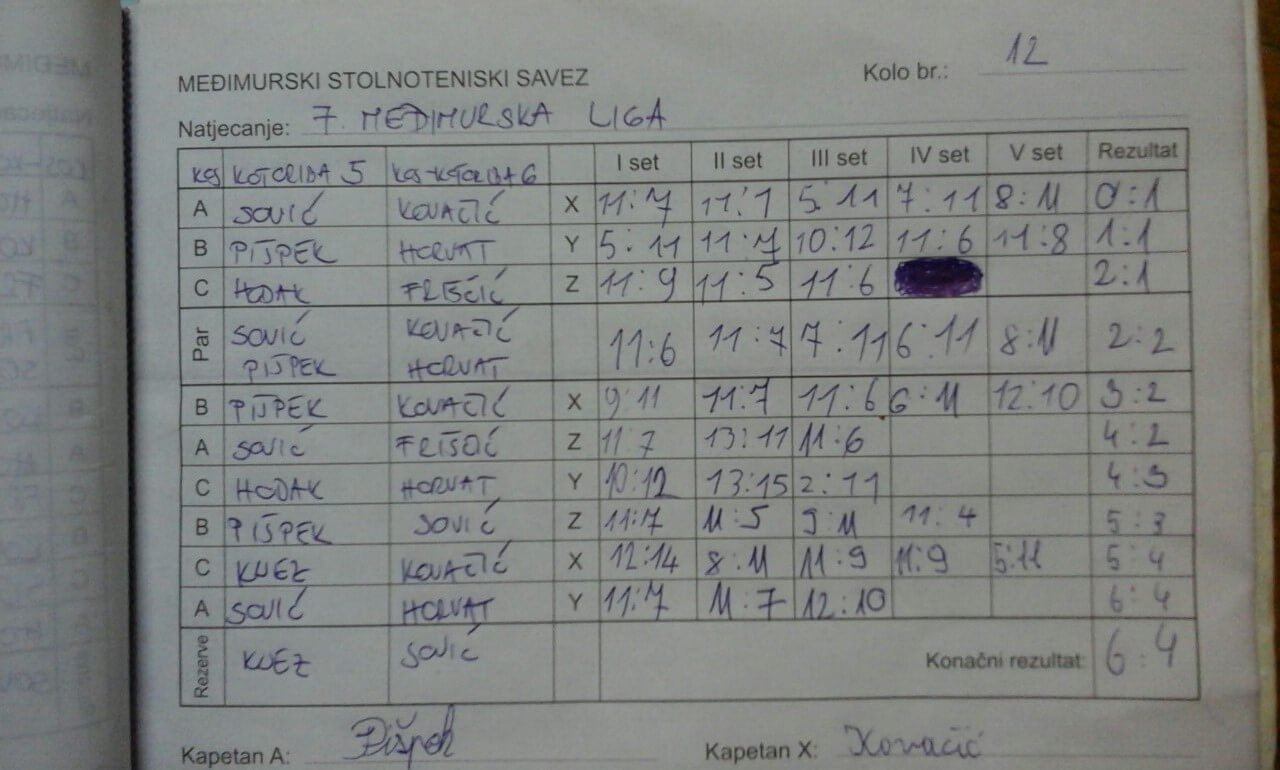 MEĐIMURSKI STOLNOTENISKI SAVEZ
Kolo br.: 12
Natjecanje: 7. MEĐIMURSKA LIGA
KGS KOTORIBA 5 KGS-KOTORIBA 6 I set II set III set IV set V set Rezultat
A SOVIĆ KOVAČIĆ X 11:7 11:1 5:11 7:11 8:11 0:1
B PIŠPEK HORVAT Y 5:11 11:7 10:12 11:6 11:8 1:1
C HODAK FRIŠČIĆ Z 11:9 11:5 11:6 2:1
Par SOVIĆ KOVAČIĆ 11:6 11:7 7:11 6:11 8:11 2:2
PIŠPEK HORVAT
B PIŠPEK KOVAČIĆ X 9:11 11:7 11:6 6:11 12:10 3:2
A SOVIĆ FRIŠČIĆ Z 11:7 13:11 11:6 4:2
C HODAK HORVAT Y 10:12 13:15 2:11 4:3
B PIŠPEK SOVIĆ Z 11:7 11:5 9:11 11:4 5:3
C KNEZ KOVAČIĆ X 12:14 8:11 11:9 11:9 5:11 5:4
A SOVIĆ HORVAT Y 11:7 11:7 12:10 6:4
Rezerve KNEZ SOVIĆ Konačni rezultat: 6:4
Kapetan A: Pišpek Kapetan X: Kovačić